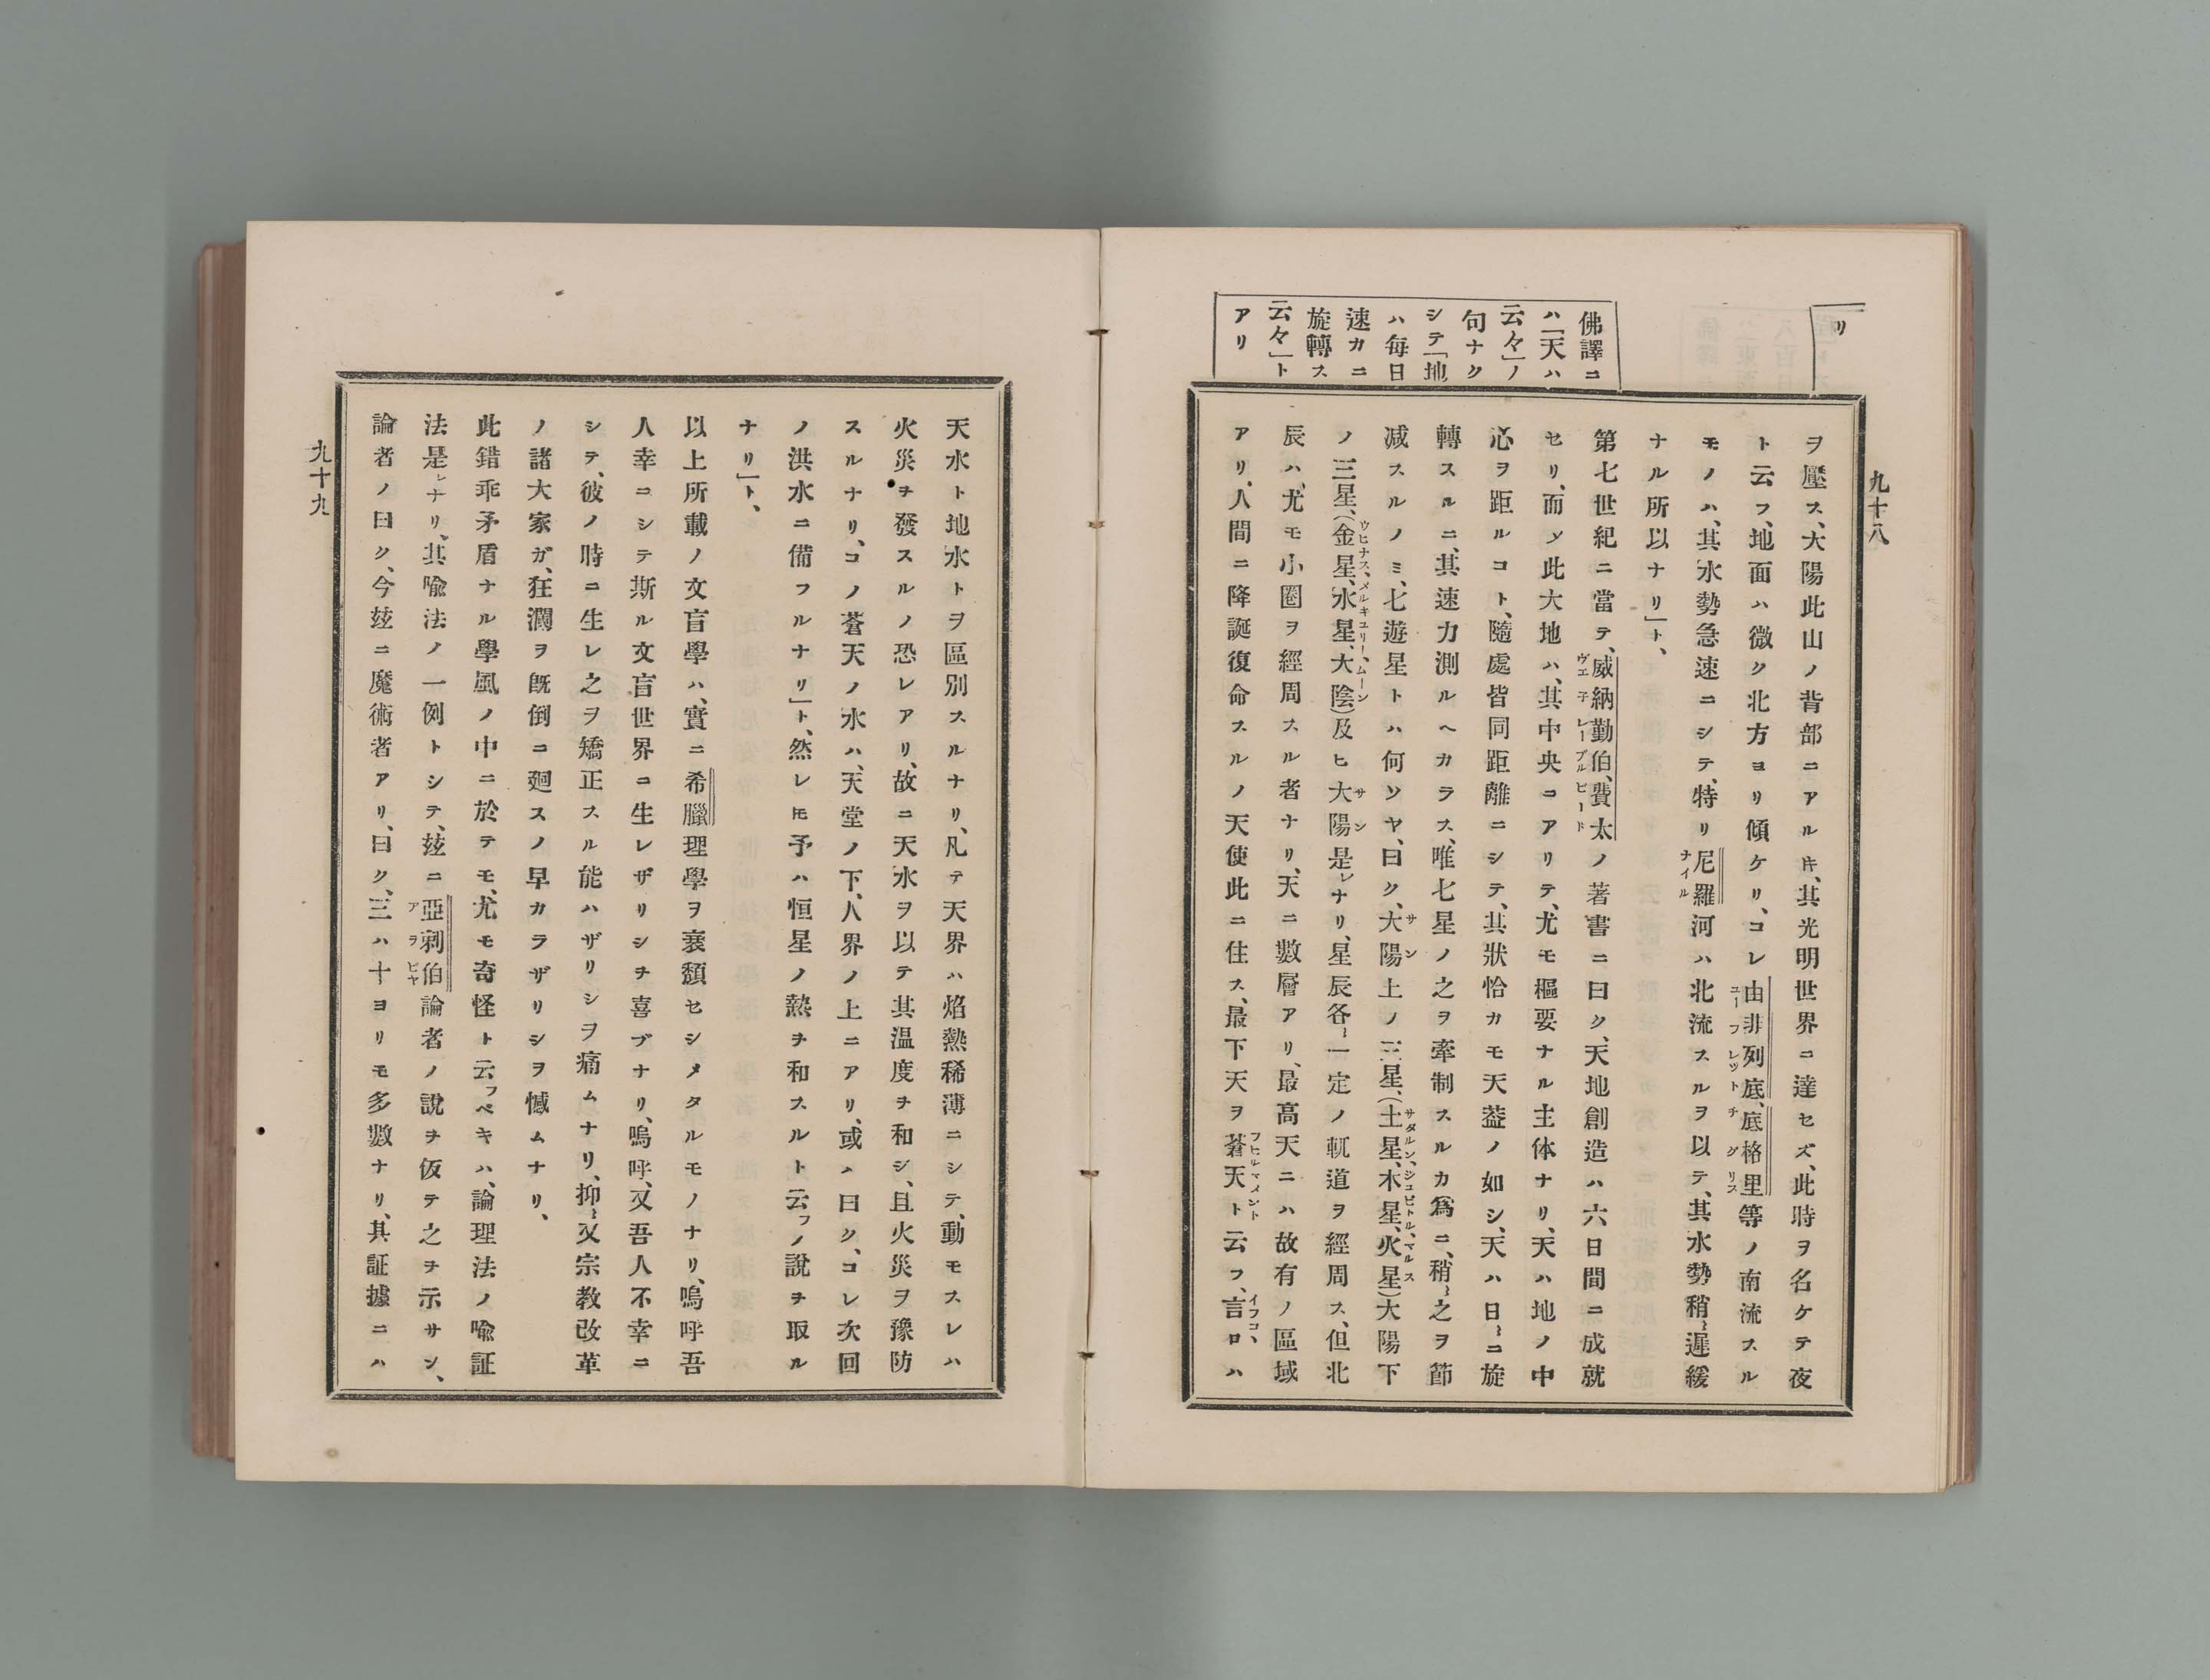 九十八
リ
佛譯ニ
ハ「天ハ
云々」ノ
句ナク
シテ「地
ハ毎日
速カニ
旋轉ス
云々」ト
アリ
ヲ壓ス、大陽此山ノ背部ニアルキ、其光明世界ニ達セズ、此時ヲ名ケテ夜
ト云フ、地面ハ微ク北方ヨリ傾ケリ、コレ由非列底、底格里等ノ南流スル
モノハ、其水勢急速ニシテ、特リ尼羅河ハ北流スルヲ以テ、其水勢稍〻遲緩
ナル所以ナリ」ト、
第七世紀ニ當テ、威納勤伯、費太ノ著書ニ曰ク、天地創造ハ六日間ニ成就
セリ、而メ此大地ハ、其中央ニアリテ、尤モ樞要ナル主体ナリ、天ハ地ノ中
心ヲ距ルコト、隨處皆同距離ニシテ、其狀恰カモ天葢ノ如シ、天ハ日〻ニ旋
轉スルニ、其速力測ルヘカラス、唯七星ノ之ヲ牽制スルカ爲ニ、稍〻之ヲ節
减スルノミ、七遊星トハ何ソヤ、曰ク、大陽上ノ三星、(土星、木星、火星)大陽下
ノ三星、(金星、水星、大陰)及ヒ大陽是レナリ、星辰各〻一定ノ軌道ヲ經周ス、但北
辰ハ、尤モ小圈ヲ經周スル者ナリ、天ニ數層アリ、最高天ニハ故有ノ區域
アリ、人間ニ降誕復命スルノ天使此ニ住ス、最下天ヲ蒼天ト云フ、言ロハ
天水ト地水トヲ區別スルナリ、凡テ天界ハ焰熱稀薄ニシテ、動モスレハ
火災ヲ發スルノ恐レアリ、故ニ天水ヲ以テ其温度ヲ和シ、且火災ヲ豫防
スルナリ、コノ蒼天ノ水ハ、天堂ノ下、人界ノ上ニアリ、或ハ曰ク、コレ次回
ノ洪水ニ備フルナリ」ト、然レモ予ハ恒星ノ熱ヲ和スルト云フノ說ヲ取ル
ナリ」ト、
以上所載ノ文盲學ハ、實ニ希臘理學ヲ衰頽セシメタルモノナリ、嗚呼吾
人幸ニシテ斯ル文盲世界ニ生レザリシヲ喜ブナリ、嗚呼、又吾人不幸ニ
シテ、彼ノ時ニ生レ之ヲ矯正スル能ハザリシヲ痛ムナリ、抑〻又宗教改革
ノ諸大家ガ、狂瀾ヲ旣倒ニ廻スノ早カラザリシヲ憾ムナリ、
此錯乖矛盾ナル學風ノ中ニ於テモ、尤モ奇怪ト云フベキハ、論理法ノ喩証
法是レナリ、其喩法ノ一例トシテ、玆ニ亞剌伯論者ノ說ヲ仮テ之ヲ示サン、
論者ノ曰ク、今玆ニ魔術者アリ、曰ク、三ハ十ヨリモ多數ナリ、其証據ニハ
九十九